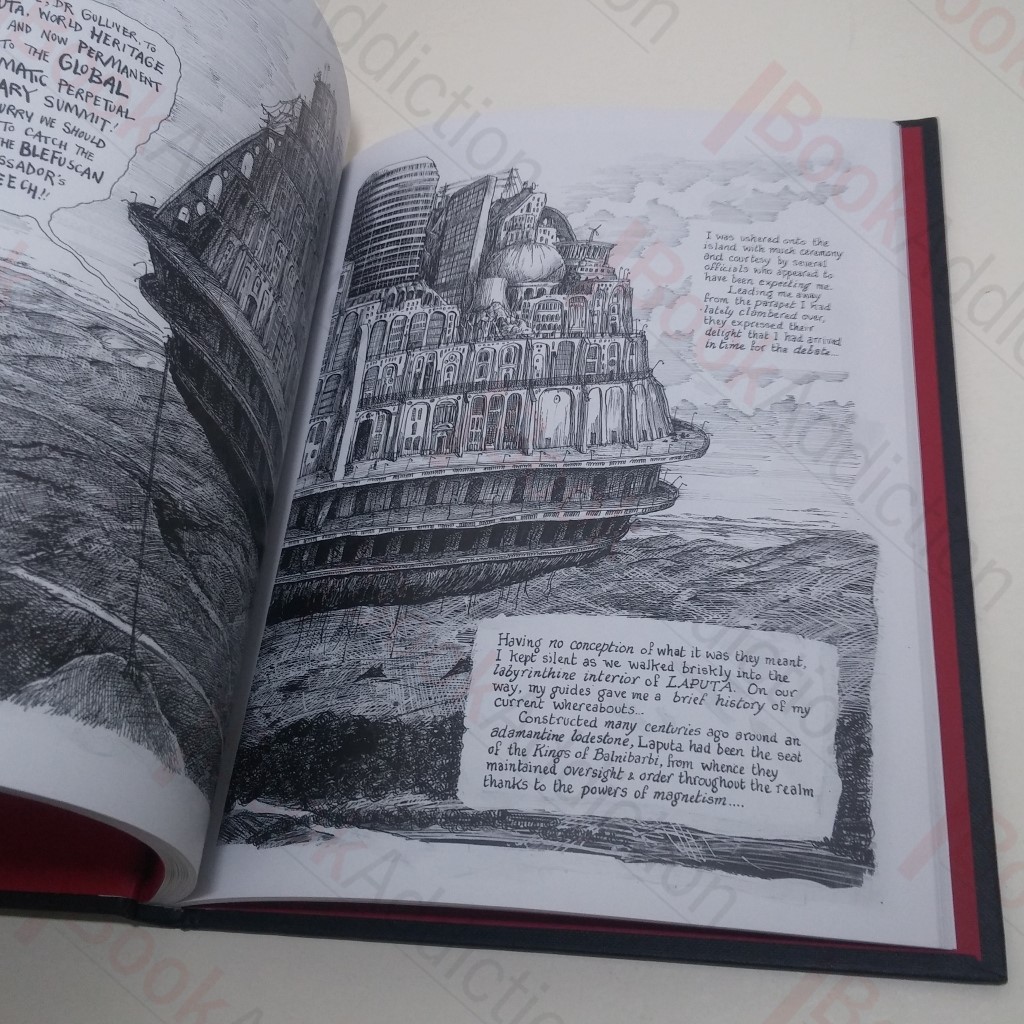 , DR GULLIVER, TO
UTA. WORLD HERITAGE
AND NOW PERMANENT
TO THE GLOBAL
MATIC PERPETUAL
ARY SUMMIT!
URRY WE SHOULD
TO CATCH THE
HE BLEFUSCAN
SSADOR'S
EECH!!
I was ushered onto the
island with much ceremony
and courtesy by several
officials who appeared to
have been expecting me.
Leading me away
from the parapet I had
lately clambered over,
they expressed their
delight that I had arrived
in time for the debate...
Having no conception of what it was they meant,
I kept silent as we walked briskly into the
labyrinthine interior of LAPUTA. On our
way, my guides gave me a brief history of my
current whereabouts...
Constructed many centuries ago around an
adamantine lodestone, Laputa had been the seat
of the Kings of Balnibarbi, from whence they
maintained oversight & order throughout the realm
thanks to the powers of magnetism....
BookAddiction